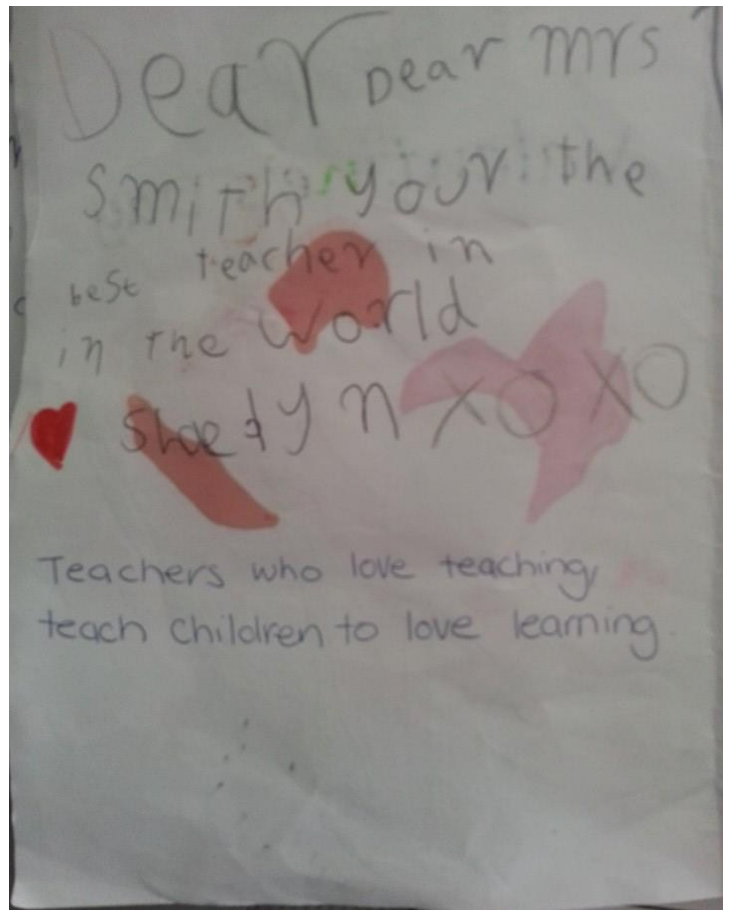 Dear Dear mrs
smith your the
best teacher in
in the world
XOXO
Teachers who love teaching
teach children to love learning